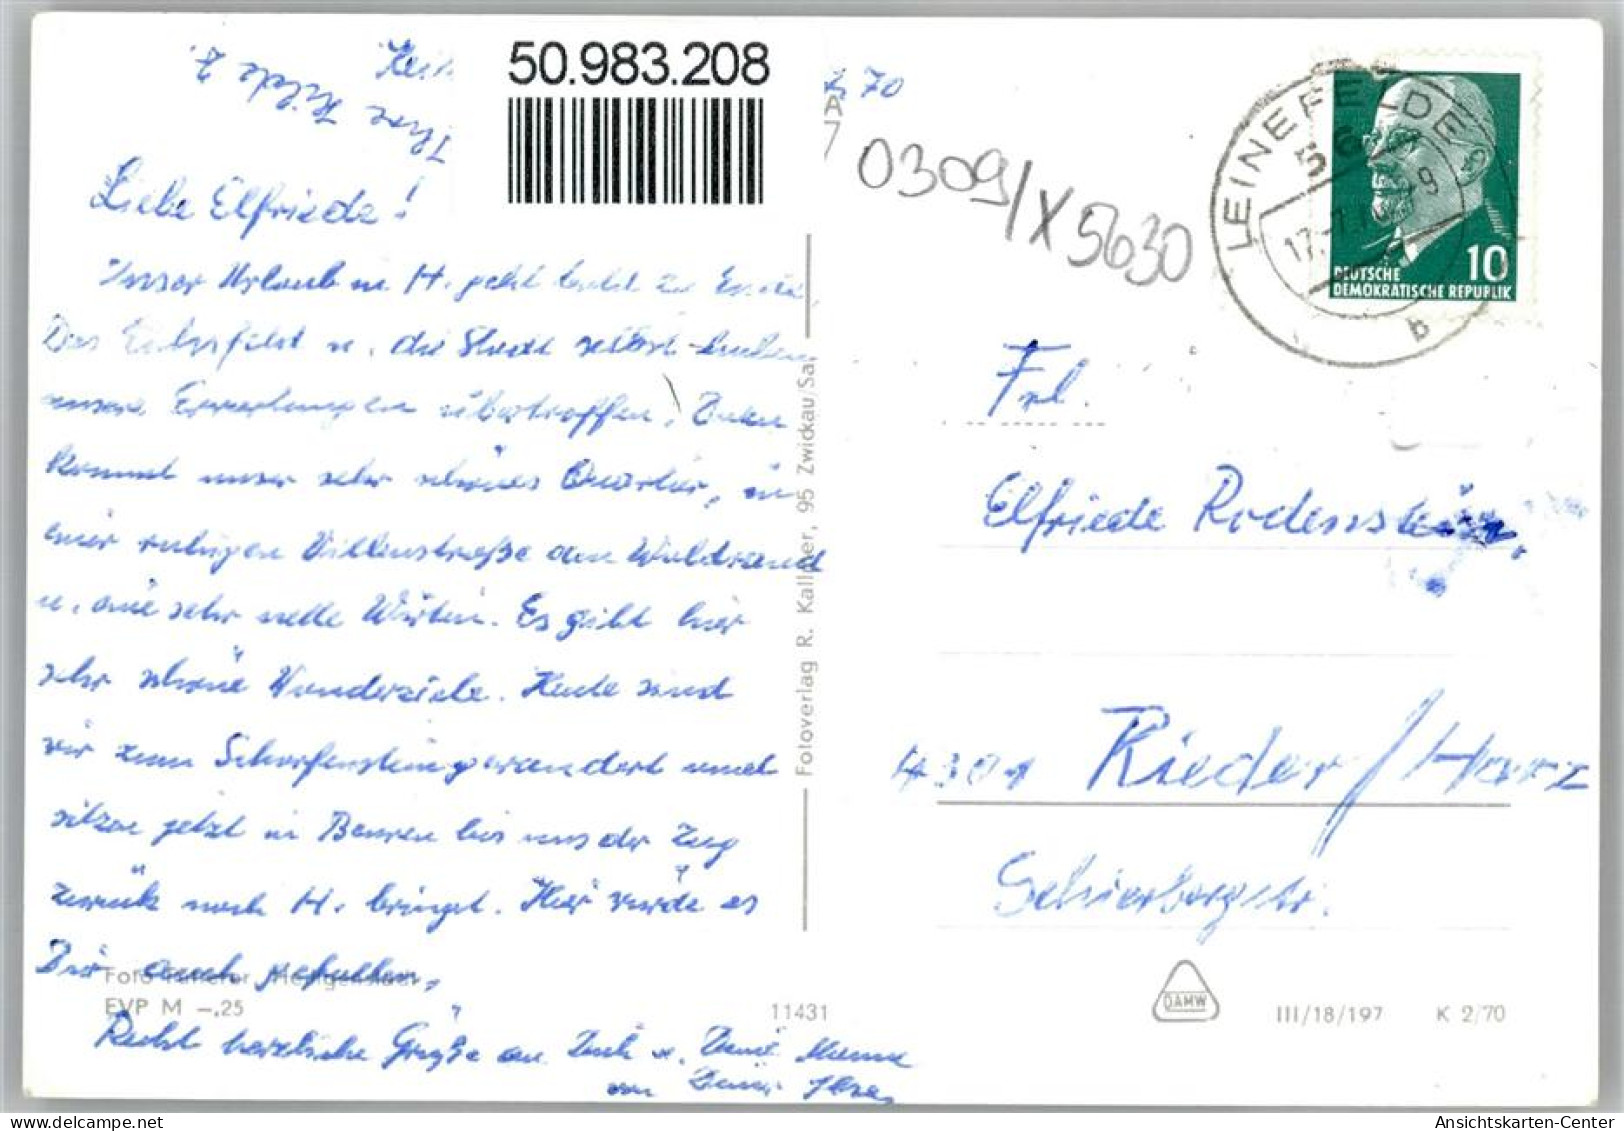 50.983.208
70
A
7
0309/X5630
LEINEFELDE
56
17.-7.
-9
b
10
DEUTSCHE
DEMOKRATISCHE REPUBLIK
Ihre Hilde Z.
Liebe Elfriede!
Unser Urlaub in H. geht bald zu Ende.
Das Eichsfeld u. die Stadt selbst haben
unsere Erwartungen übertroffen. Dazu
kommt unser sehr schönes Quartier, in
einer ruhigen Villenstraße am Waldrand
u. eine sehr nette Wirtin. Es gibt hier
sehr schöne Wanderziele. Heute sind
wir zum Scharfenstein gewandert und
sitzen jetzt in Beuren bis uns der Zug
zurück nach H. bringt. Hier würde es
Dir auch gefallen.
Recht herzliche Grüße an Dich u. Deine Mama
von Deiner
Foto
EVP M -.25
11431
Fotoverlag R. Kallmer, 95 Zwickau/Sa.
Frl.
Elfriede Rodenstein,
4301 Rieder/Harz
Schierbergstr.
DAMW
III/18/197 K 2/70
Ansichtskarten-Center